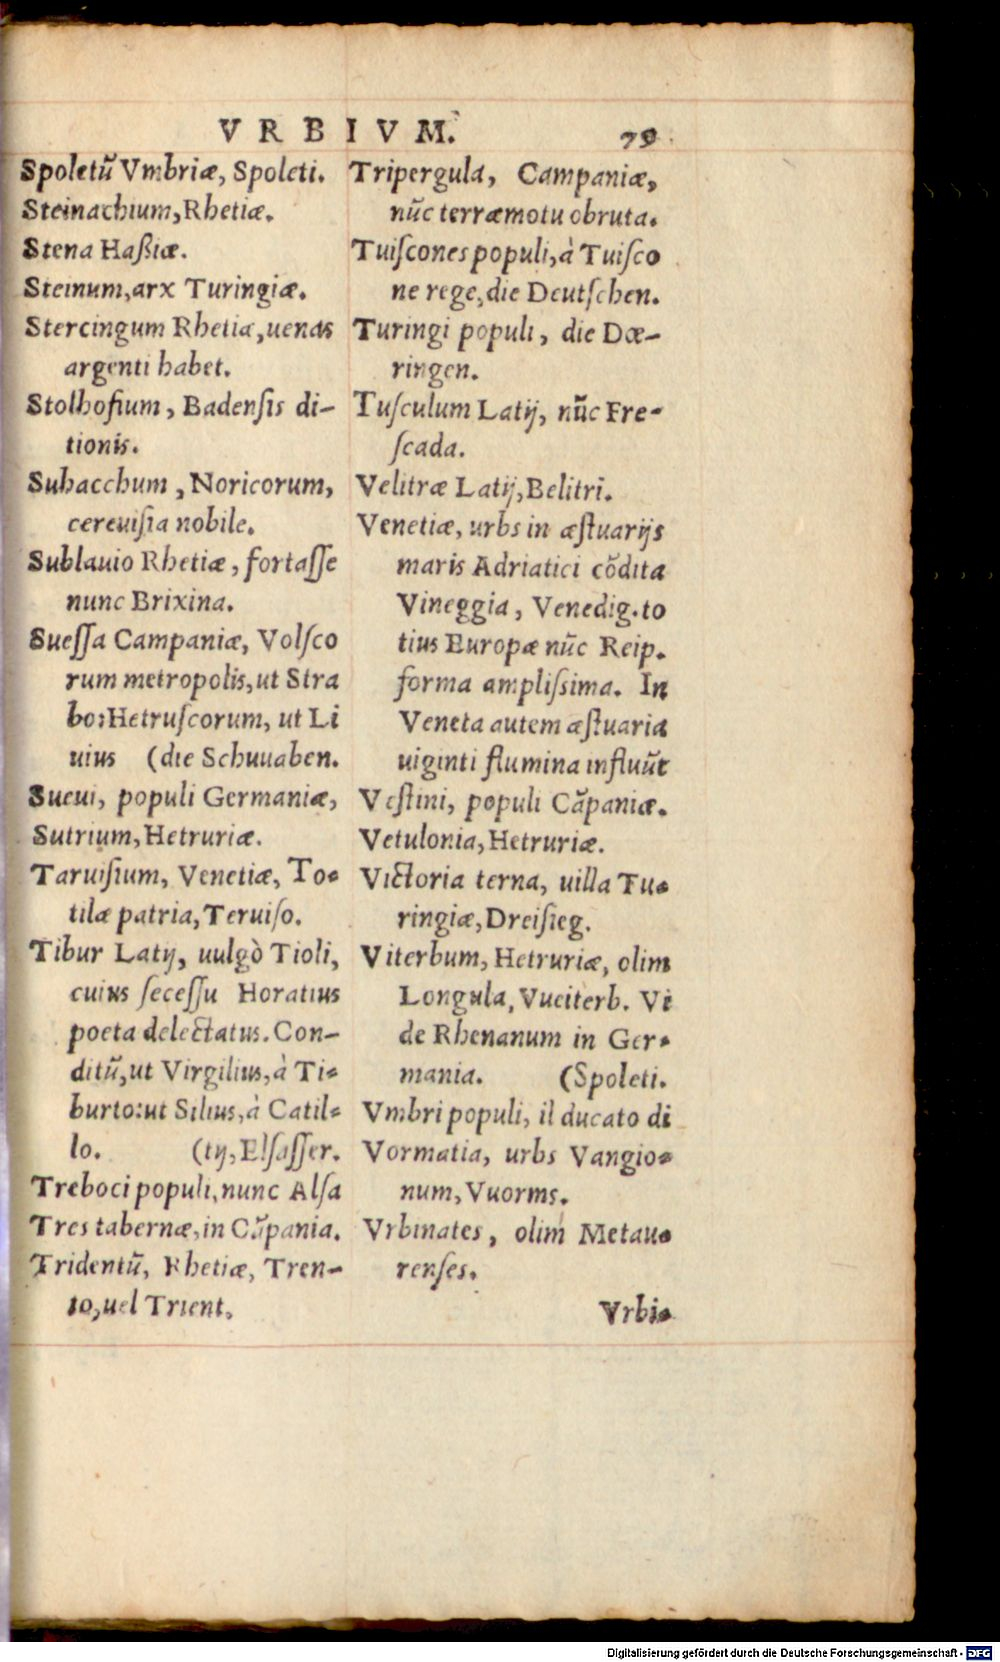 VRBIVM. 79
Spoletũ Vmbriæ, Spoleti.
Steinachium, Rhetiæ.
Stena Haßiæ.
Steinum, arx Turingiæ.
Stercingum Rhetiæ, uenas
argenti habet.
Stolhofium, Badenſis di-
tionis.
Suhacchum, Noricorum,
cereuiſia nobile.
Sublauio Rhetiæ, fortaſſe
nunc Brixina.
Sueſſa Campaniæ, Volſco
rum metropolis, ut Stra
bo: Hetruſcorum, ut Li
uius (die Schuuaben.
Sueui, populi Germaniæ,
Sutrium, Hetruriæ.
Taruiſium, Venetiæ, To-
tilæ patria, Teruiſo.
Tibur Latij, uulgò Tioli,
cuius ſeceſſu Horatius
poeta delectatus. Con-
ditũ, ut Virgilius, à Ti-
burto: ut Silius, à Catil-
lo. (tij, Elſaſſer.
Treboci populi, nunc Alſa
Tres tabernæ, in Cãpania.
Tridentũ, Rhetiæ, Tren-
to, uel Trient.
Tripergula, Campaniæ,
nũc terræmotu obruta.
Tuiſcones populi, à Tuiſco
ne rege, die Deutſchen.
Turingi populi, die Dœ-
ringen.
Tuſculum Latij, nũc Fre-
ſcada.
Velitræ Latij, Belitri.
Venetiæ, urbs in æſtuarijs
maris Adriatici cõdita
Vineggia, Venedig. to
tius Europæ nũc Reip.
forma ampliſsima. In
Veneta autem æſtuaria
uiginti flumina influũt
Veſtini, populi Cãpaniæ.
Vetulonia, Hetruriæ.
Victoria terna, uilla Tu-
ringiæ, Dreiſieg.
Viterbum, Hetruriæ, olim
Longula, Vueiterb. Vi
de Rhenanum in Ger-
mania. (Spoleti.
Vmbri populi, il ducato di
Vormatia, urbs Vangio-
num, Vuorms.
Vrbinates, olim Metau-
renſes.
Vrbi-
Digitalisierung gefördert durch die Deutsche Forschungsgemeinschaft - DFG